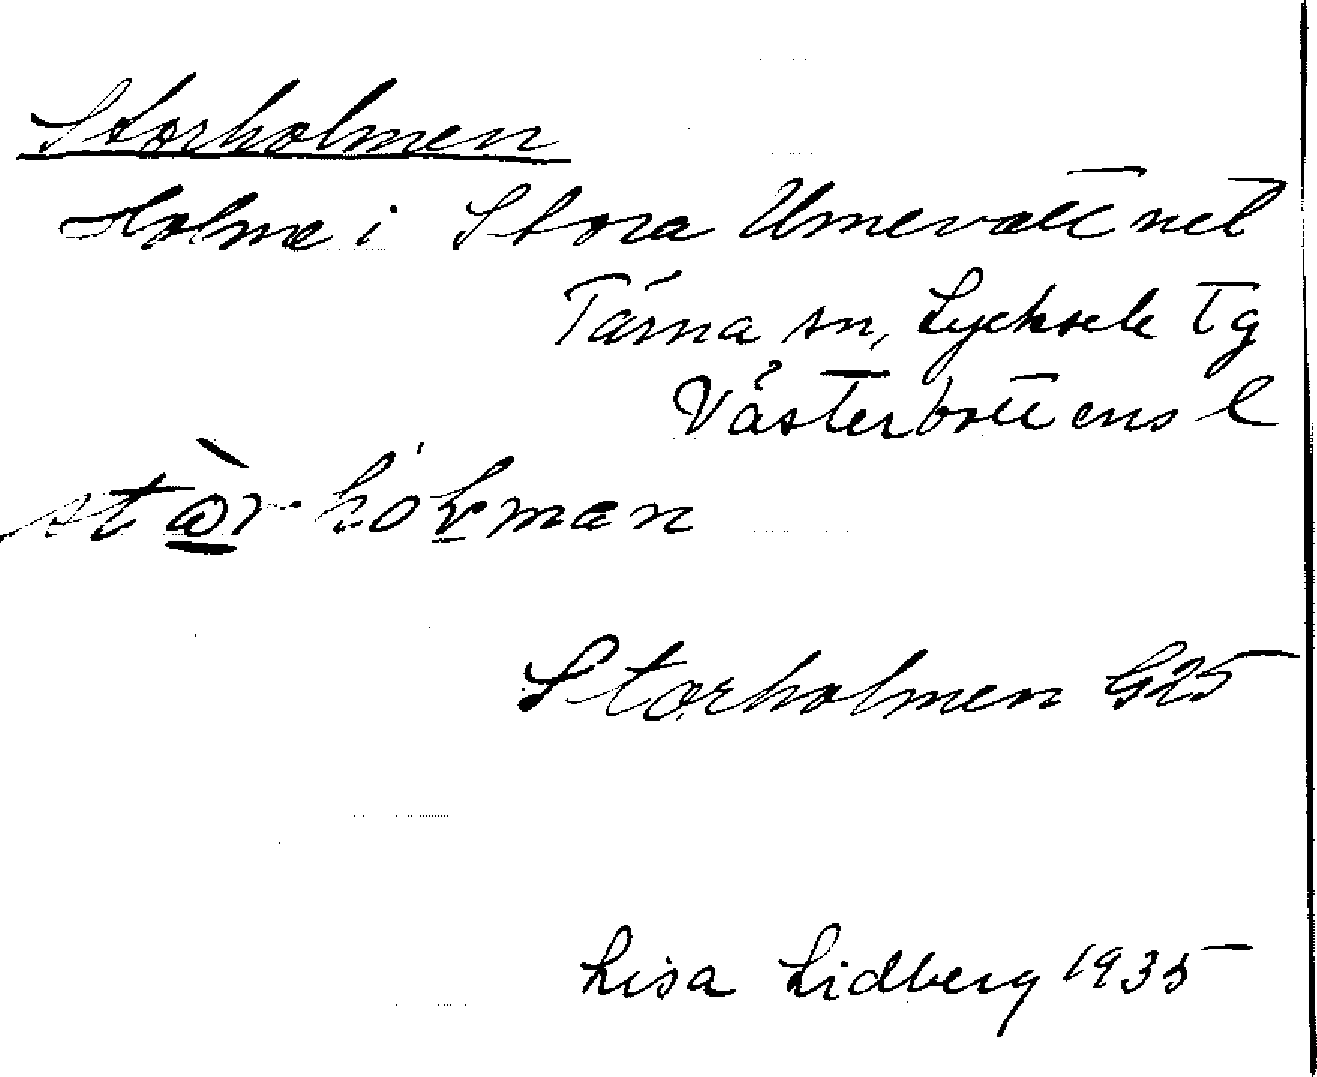 Storholmen
Holme i Stora Umevattnet
Tärna sn, Lycksele Tg
Västerbottens l
Storholmen G25
Lisa Lidberg 1935